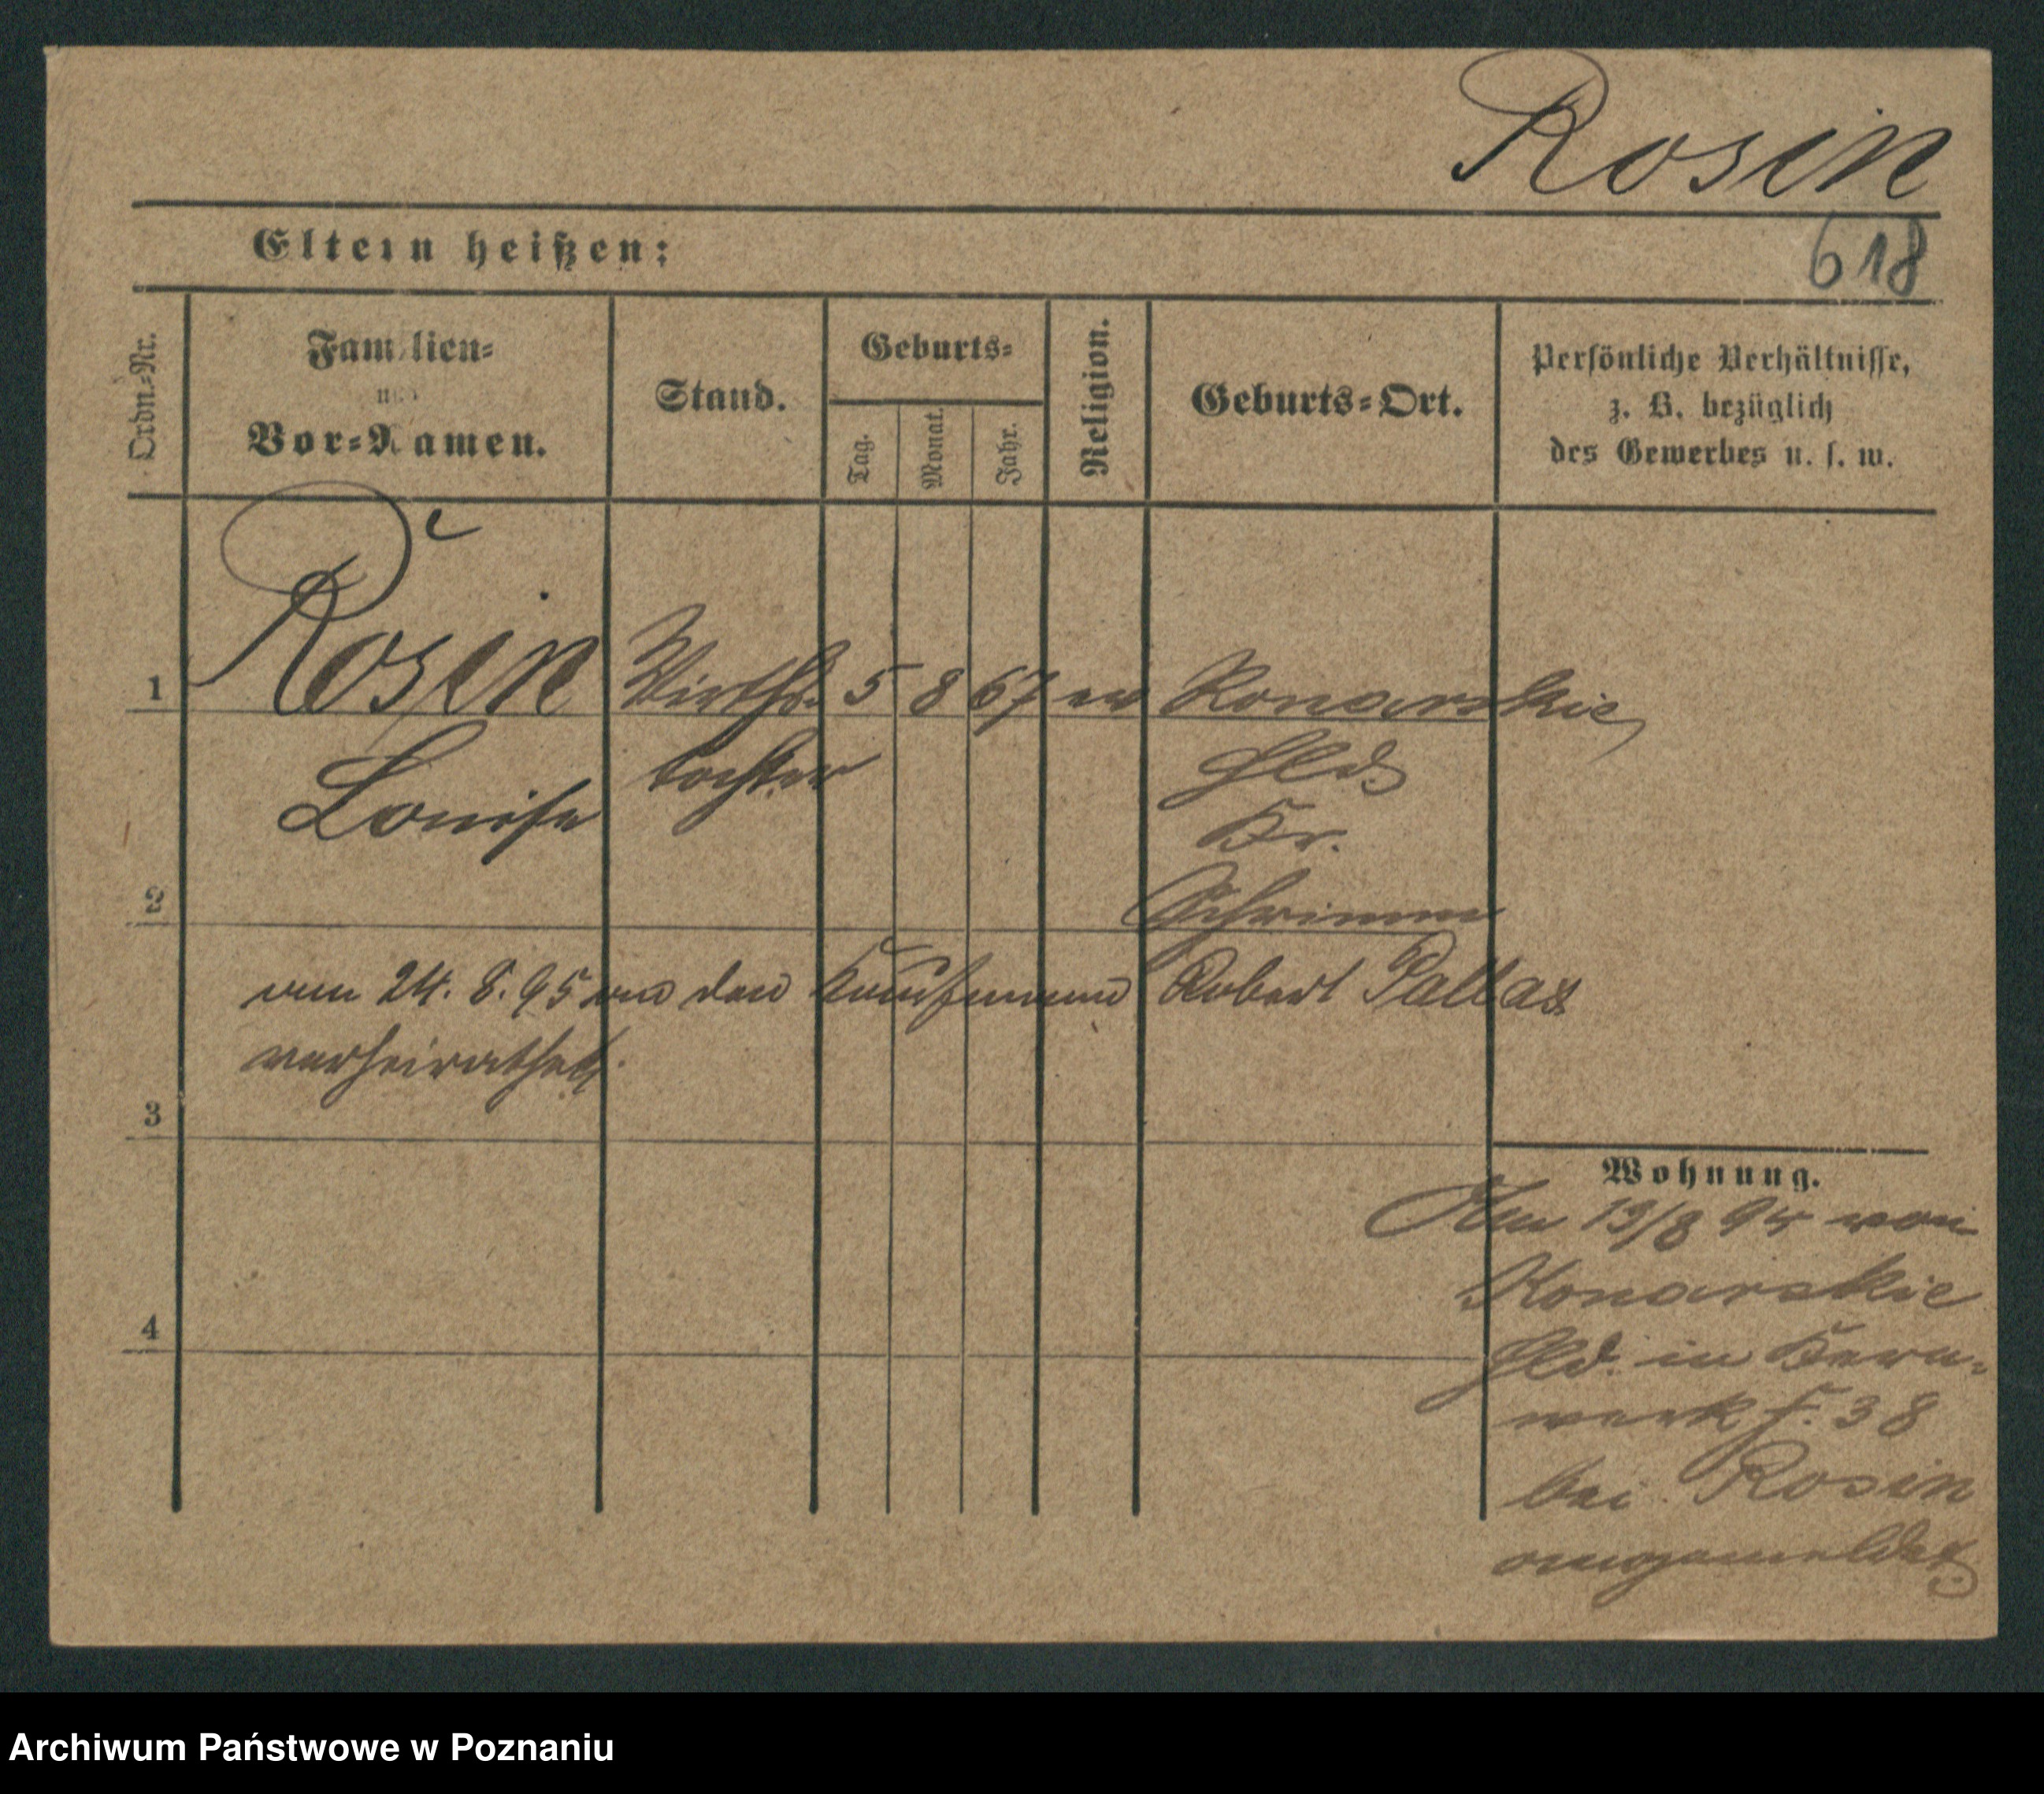 Rosin
618
Eltern heißen:
Ordn.-Nr.
Familien-
und
Vor-Namen.
Stand.
Geburts-
Tag.
Monat.
Jahr.
Religion.
Geburts-Ort.
Persönliche Verhältnisse,
z. B. bezüglich
des Gewerbes u. s. w.
1 Rosin Wirths- 5 8 67 ev Konarskie
Louise tochter Hld
Kr.
2 Schrimm
am 24. 8. 95 an den Kaufmann Robert Pallas
verheirathet.
3
Wohnung.
Am 19/8 95 von
Konarskie
4
Hld. in Kern-
werk F. 38
bei Rosin
angemeldet
Archiwum Państwowe w Poznaniu